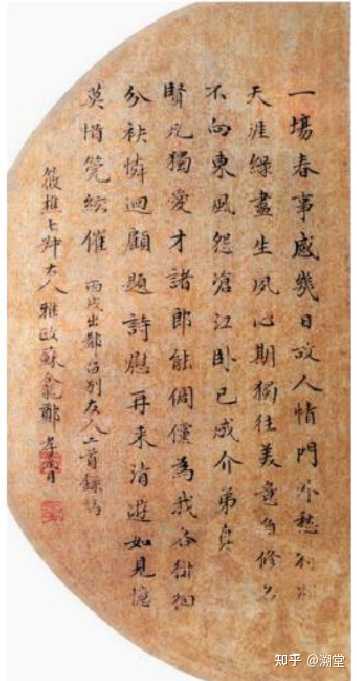 一場春事感幾日故人情門外愁
天涯綠盡生夙心期獨往美意為修名
不向東風怨滄江臥已成介弟真
賢兄獨愛才諸郎能倜儻為我各徘徊
分袂憐迴顧題詩慰再來清遊如見憶
莫惜筦絃催 丙戌出都留別友人二首錄
大人雅政蘇龕鄭孝胥
知乎 @溯堂